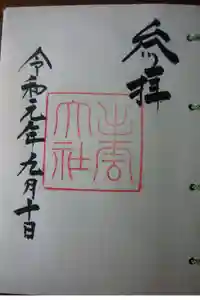 参拝
出雲大社
令和元年九月十日